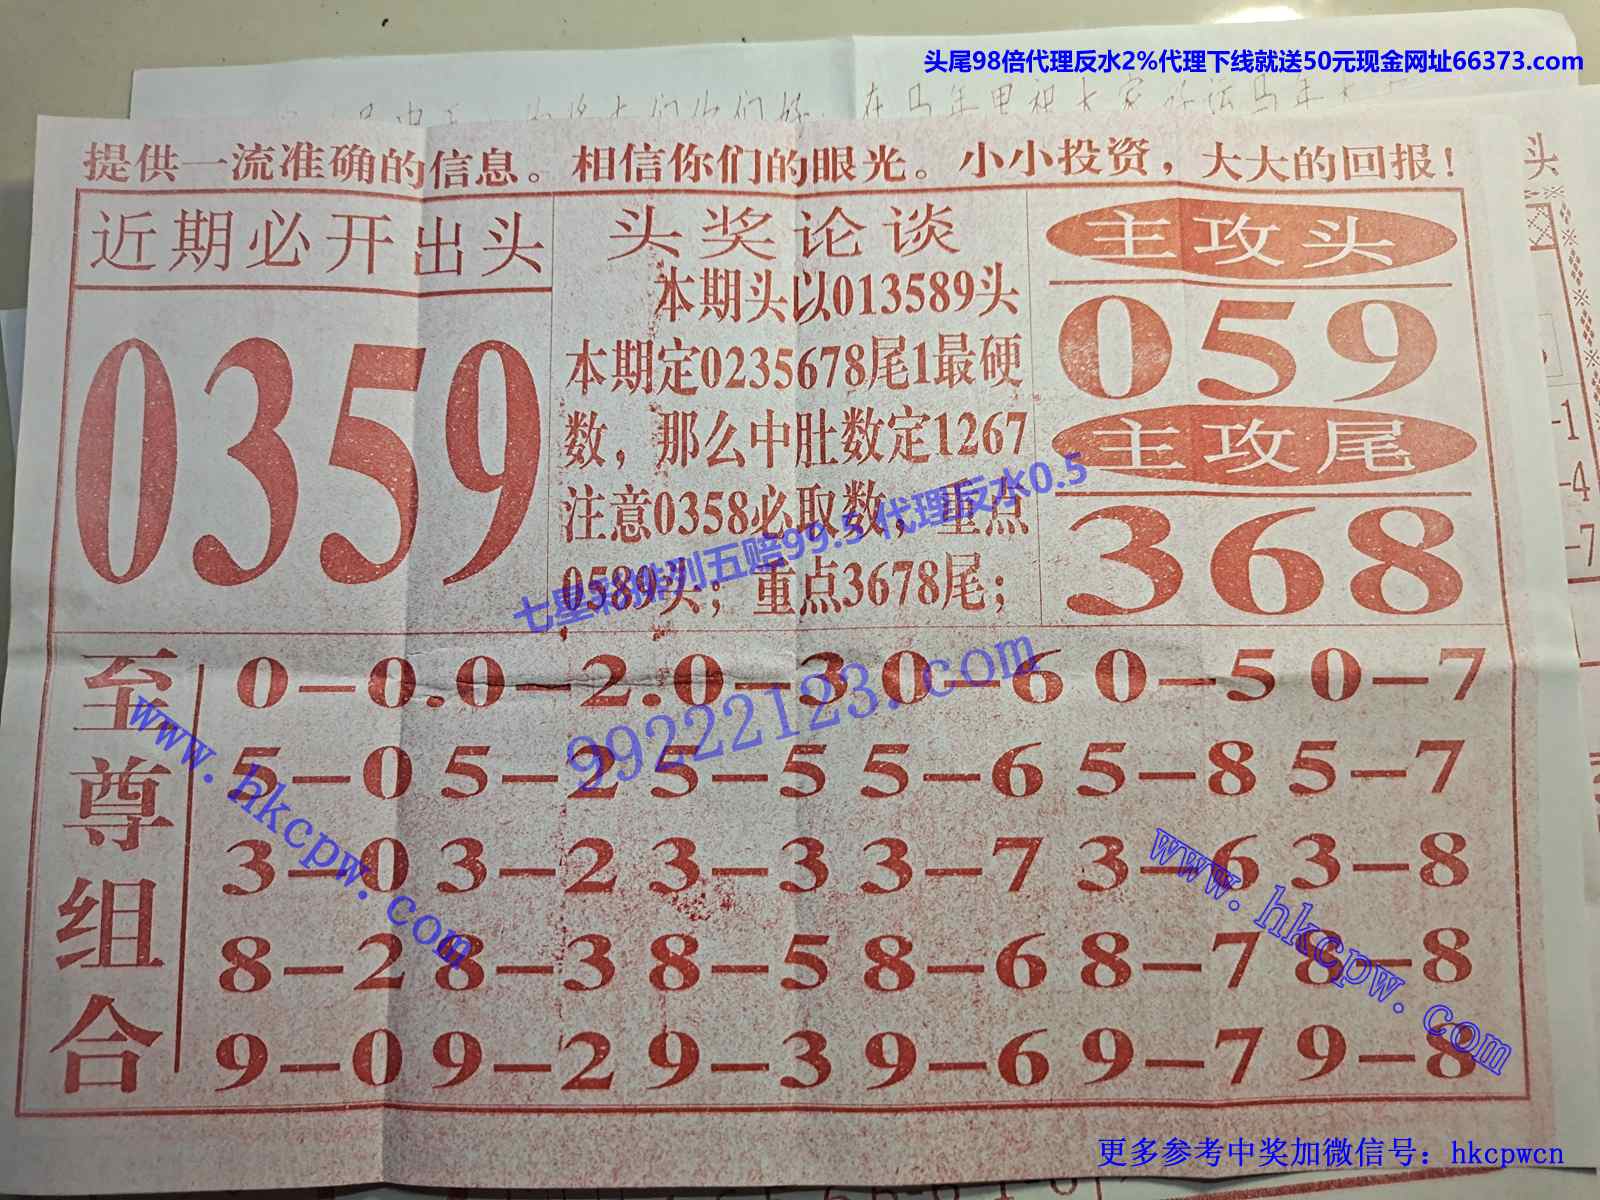 头尾98倍代理反水2%代理下线就送50元现金网址66373.com
提供一流准确的信息。相信你们的眼光。小小投资，大大的回报！
近期必开出头
0359
头奖论谈
本期头以013589头
本期定0235678尾1最硬
数，那么中肚数定1267
注意0358必取数，重点
0589头；重点3678尾；
主攻头
059
主攻尾
368
七星彩排列五赔99.5 代理反水0.5
99222123.com
至尊组合
0-0.0-2.0-3 0-6 0-5 0-7
5-0 5-2 5-5 5-6 5-8 5-7
3-0 3-2 3-3 3-7 3-6 3-8
8-2 8-3 8-5 8-6 8-7 8-8
9-0 9-2 9-3 9-6 9-7 9-8
www.hkcpw.com
www.hkcpw.com
头
-1
-4
-7
更多参考中奖加微信号：hkcpwcn